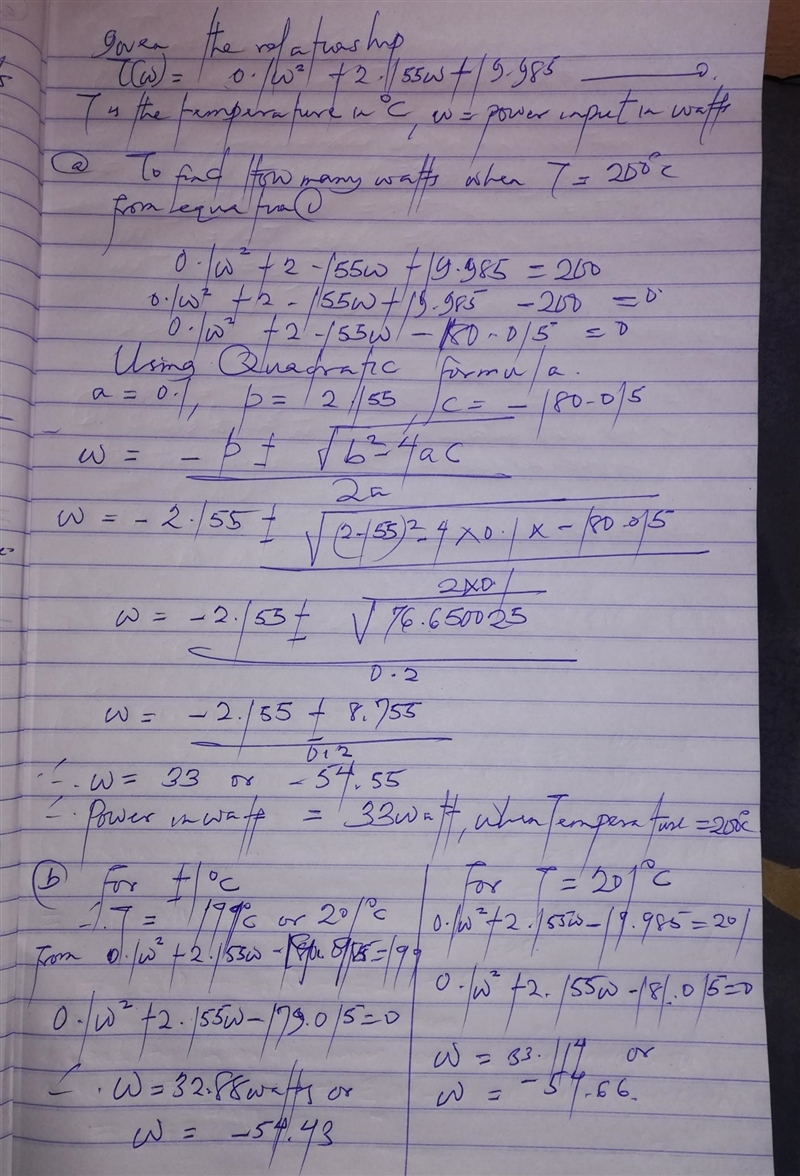 Given the relationship
T(w) = 0.1w² + 2.155w + 19.985 ——— ①
T is the temperature in °C, w = power input in watts
ⓐ To find How many watts when T = 200°C
from equation ①
0.1w² + 2.155w + 19.985 = 200
0.1w² + 2.155w + 19.985 - 200 = 0
0.1w² + 2.155w - 180.015 = 0
Using Quadratic formula.
a = 0.1, b = 2.155, c = -180.015
w = -b ± √b² - 4ac
2a
w = -2.155 ± √(2.155)² - 4 × 0.1 × -180.015
2×0.1
w = -2.155 ± √76.650025
0.2
w = -2.155 ± 8.755
0.2
∴ w = 33 or -54.55
∴ Power in watt = 33watt, when Temperature = 200°C
ⓑ For ±1°C
∴ T = 199°C or 201°C
from 0.1w² + 2.155w - = 199
0.1w² + 2.155w - 179.015 = 0
∴ w = 32.88watts or
w = -54.43
For T = 201°C
0.1w² + 2.155w - 19.985 = 201
0.1w² + 2.155w - 181.015 = 0
w = 33.114 or
w = -54.66.